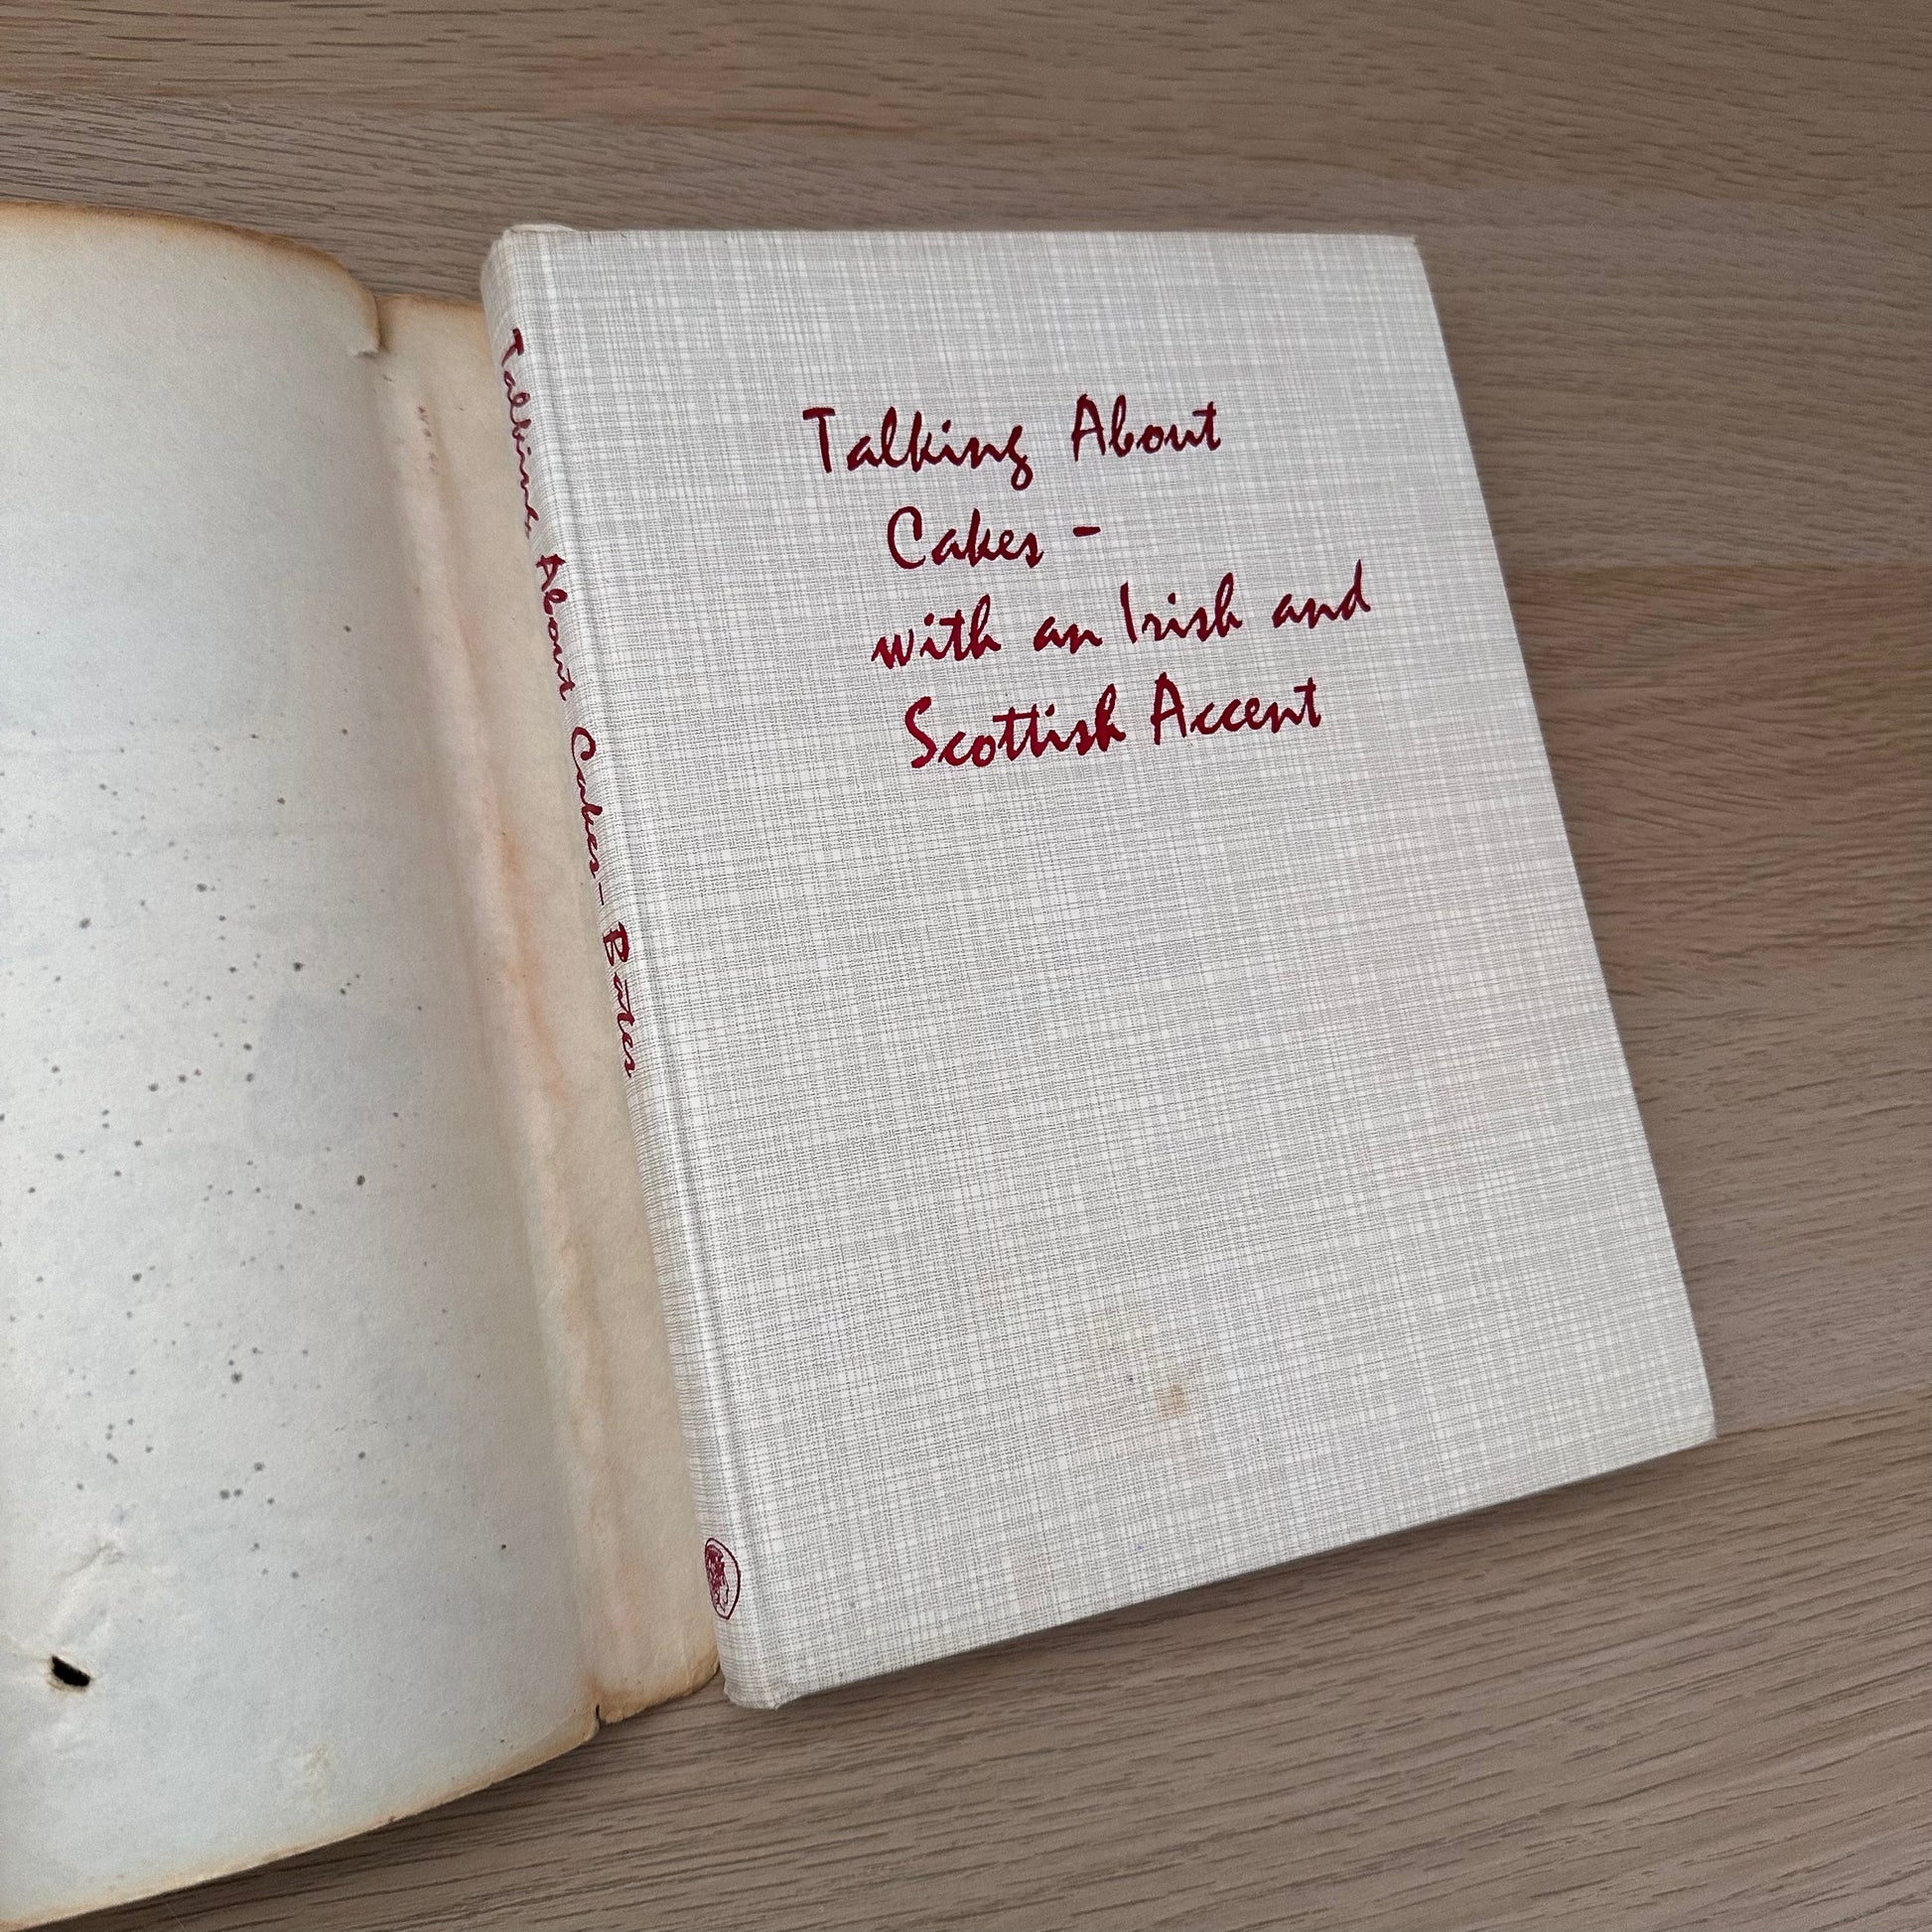 Talking About
Cakes -
with an Irish and
Scottish Accent
Talking About Cakes - Bates